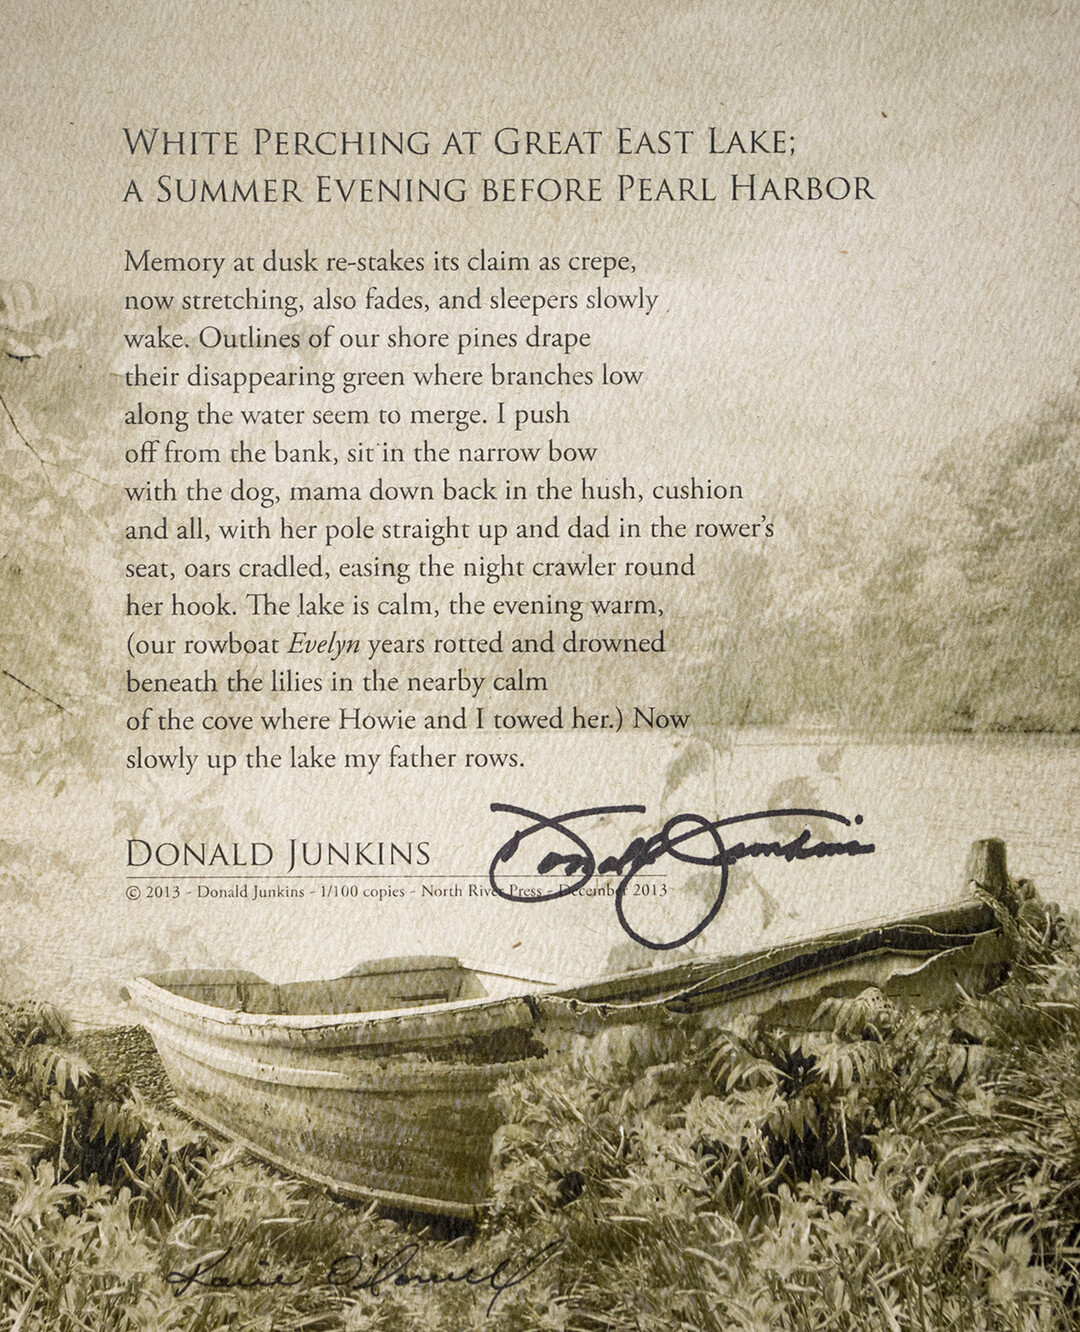 WHITE PERCHING AT GREAT EAST LAKE;
A SUMMER EVENING BEFORE PEARL HARBOR
Memory at dusk re-stakes its claim as crepe,
now stretching, also fades, and sleepers slowly
wake. Outlines of our shore pines drape
their disappearing green where branches low
along the water seem to merge. I push
off from the bank, sit in the narrow bow
with the dog, mama down back in the hush, cushion
and all, with her pole straight up and dad in the rower's
seat, oars cradled, easing the night crawler round
her hook. The lake is calm, the evening warm,
(our rowboat Evelyn years rotted and drowned
beneath the lilies in the nearby calm
of the cove where Howie and I towed her.) Now
slowly up the lake my father rows.
DONALD JUNKINS
Donald Junkins
© 2013 - Donald Junkins - 1/100 copies - North River Press - December 2013